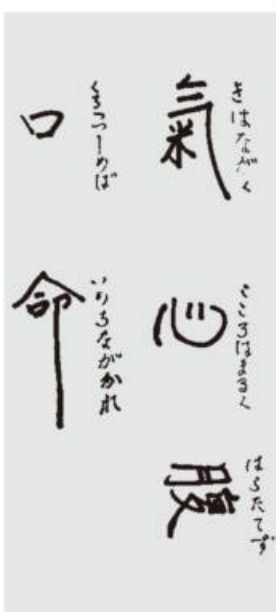 きはながく
氣
こころはまるく
心
はらたてず
腹
くちつつしめば
口
いのちながかれ
命